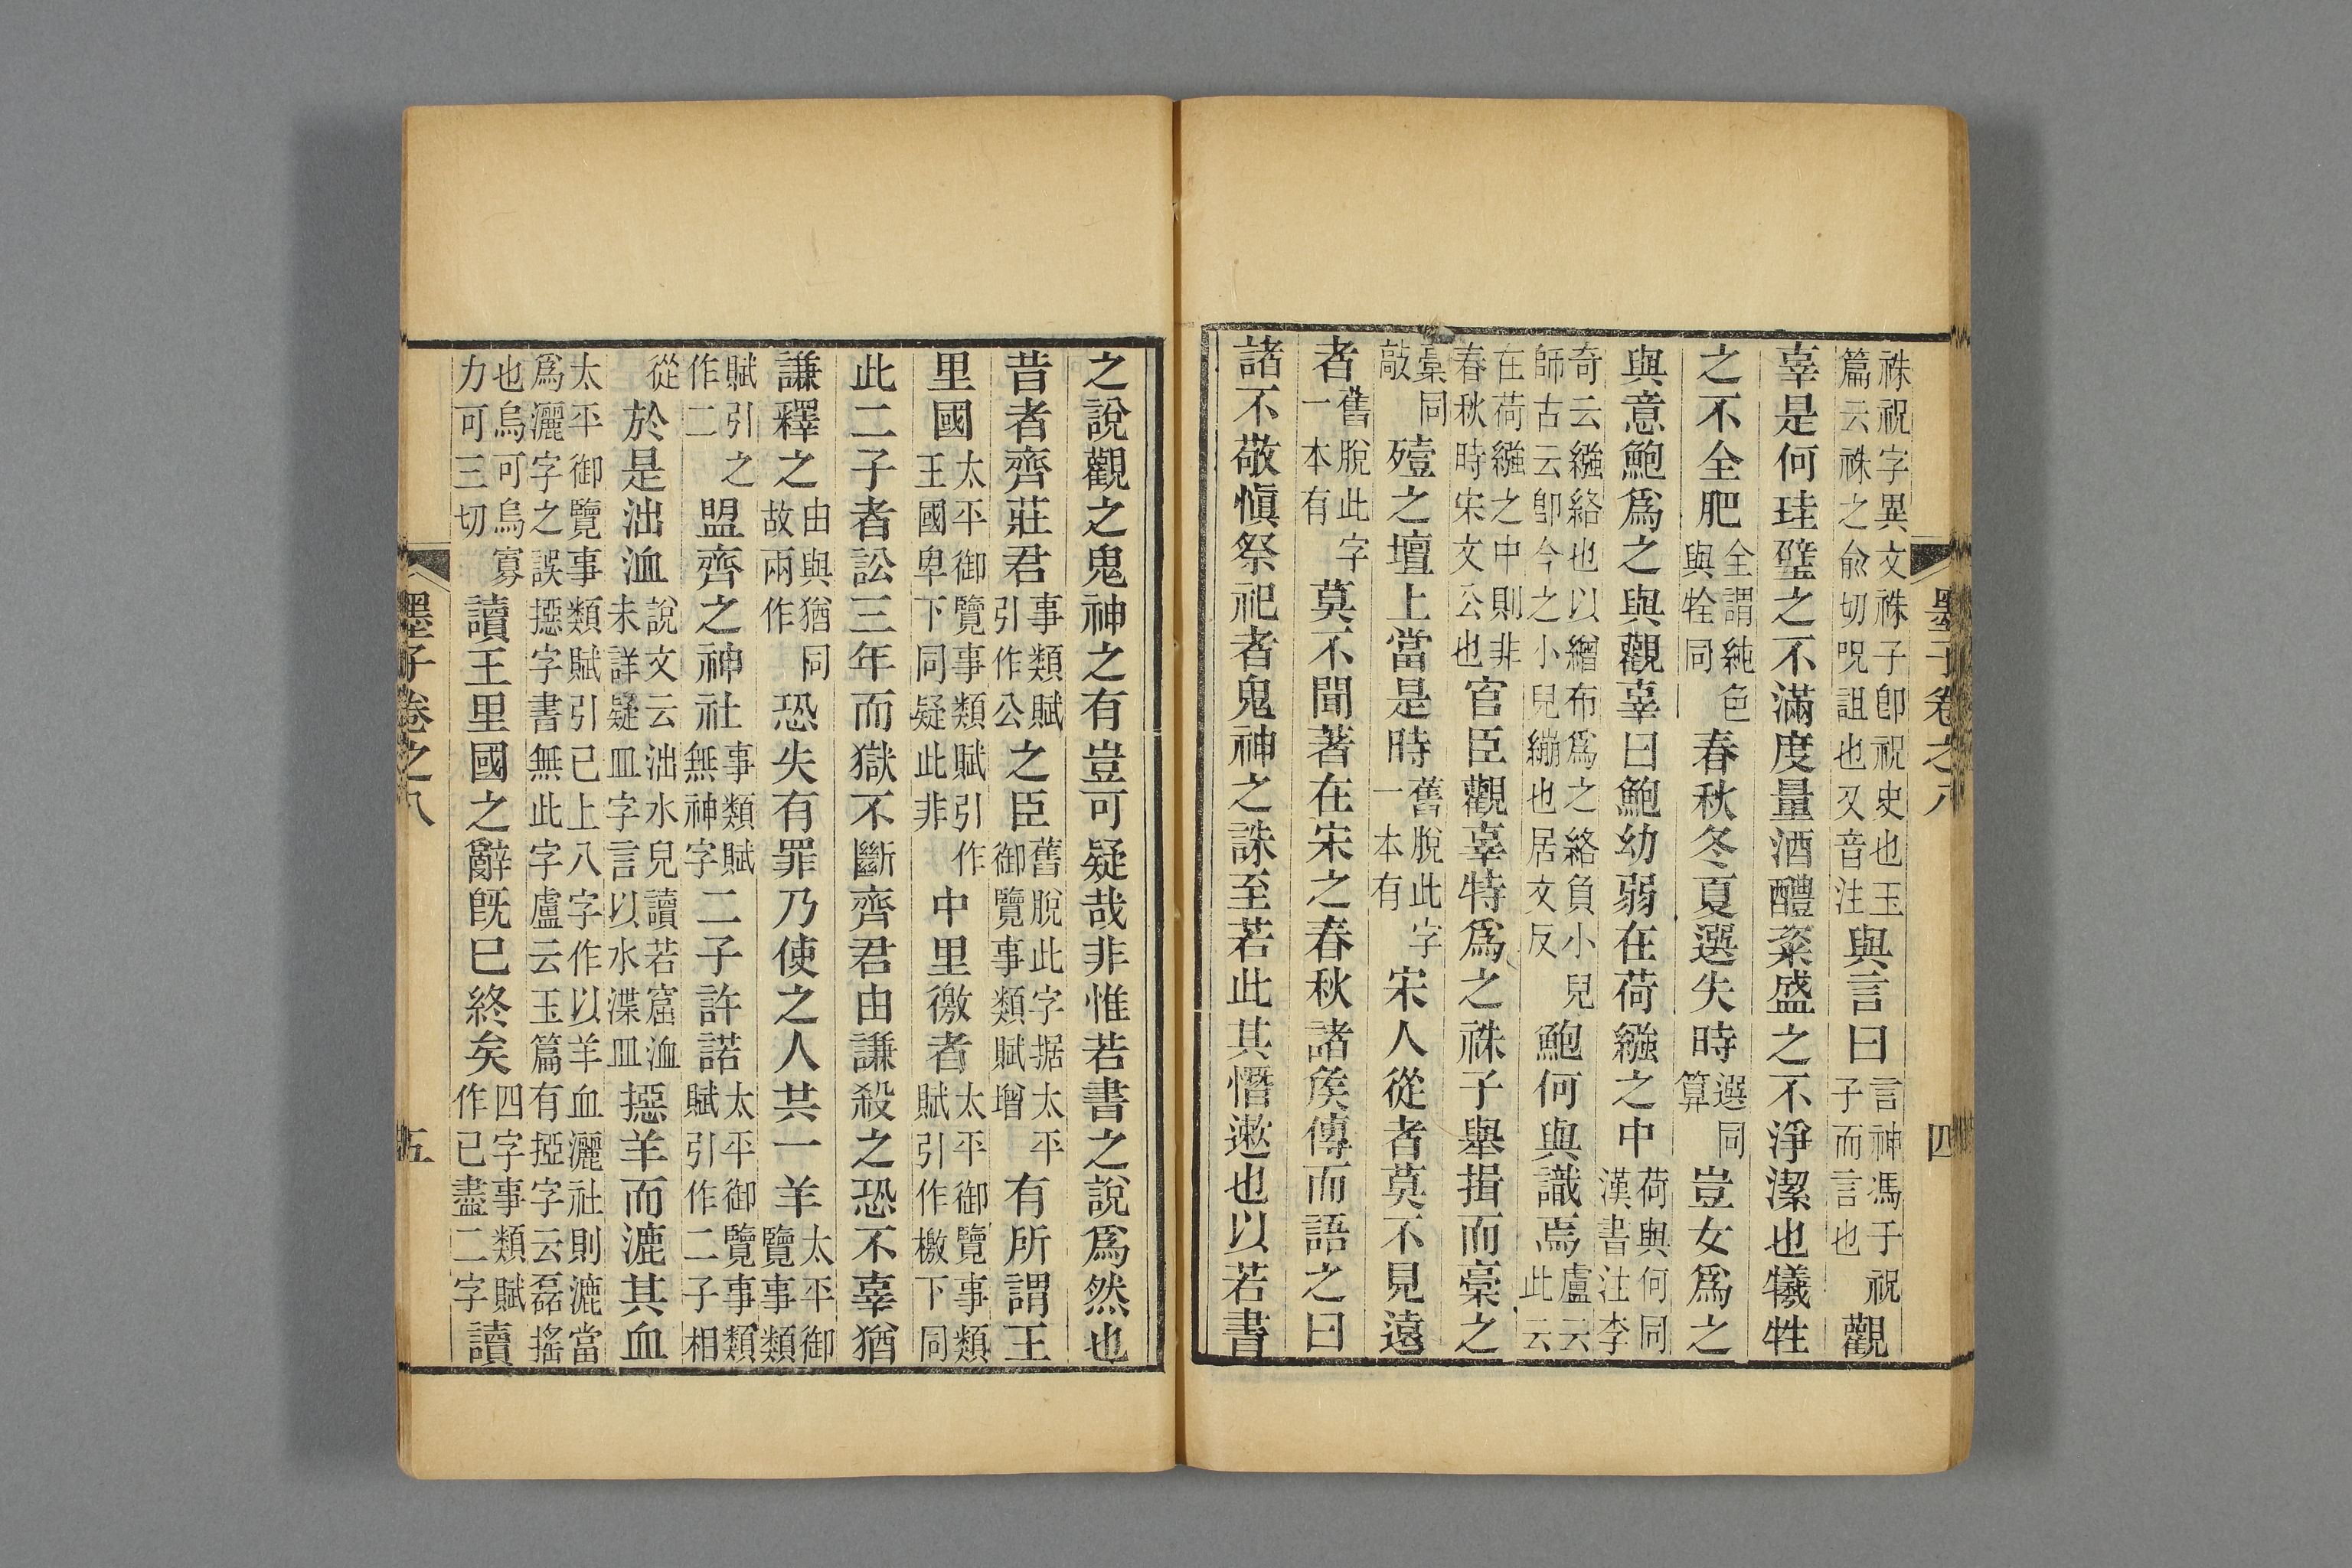 墨子卷之八 四
祩祝字異文祩子卽祝史也玉篇云祩之兪切呪詛也又音注與言曰言神馮子祝子而言也觀
辜是何珪璧之不滿度量酒醴粢盛之不淨潔也犧牲
之不全肥全謂純色與牷同春秋冬夏選失時選同算豈女爲之
與意鮑爲之與觀辜曰鮑幼弱在荷繈之中荷與何同漢書注李
奇云繈絡也以繒布爲之絡負小兒師古云卽今之小兒繃也居丈反鮑何與識焉盧云此云
在荷繈之中則非春秋時宋文公也官臣觀辜特爲之祩子舉揖而槀之
槀同敲殪之壇上當是時舊脫此字一本有宋人從者莫不見遠
者舊脫此字一本有莫不聞著在宋之春秋諸矦傳而語之曰
諸不敬愼祭祀者鬼神之誅至若此其憯遬也以若書
之說觀之鬼神之有豈可疑哉非惟若書之說爲然也
昔者齊莊君事類賦引作公之臣舊脫此字据太平御覽事類賦增有所謂王
里國太平御覽事類賦引作王國卑下同疑此非中里徼者太平御覽事類賦引作檄下同
此二子者訟三年而獄不斷齊君由謙殺之恐不辜猶
謙釋之由與猶同故兩作恐失有罪乃使之人共一羊太平御覽事類
賦引之作二盟齊之神社事類賦無神字二子許諾太平御覽事類賦引作二子相
從於是泏洫說文云泏水皃讀若窟洫未詳疑皿字言以水渫皿摁羊而漉其血
太平御覽事類賦引已上八字作以羊血灑社則漉當爲灑字之誤摁字書無此字盧云玉篇有掗字云磊搖
也烏可烏寡力可三切讀王里國之辭旣已終矣四字事類賦作已盡二字讀
墨子卷之八 五